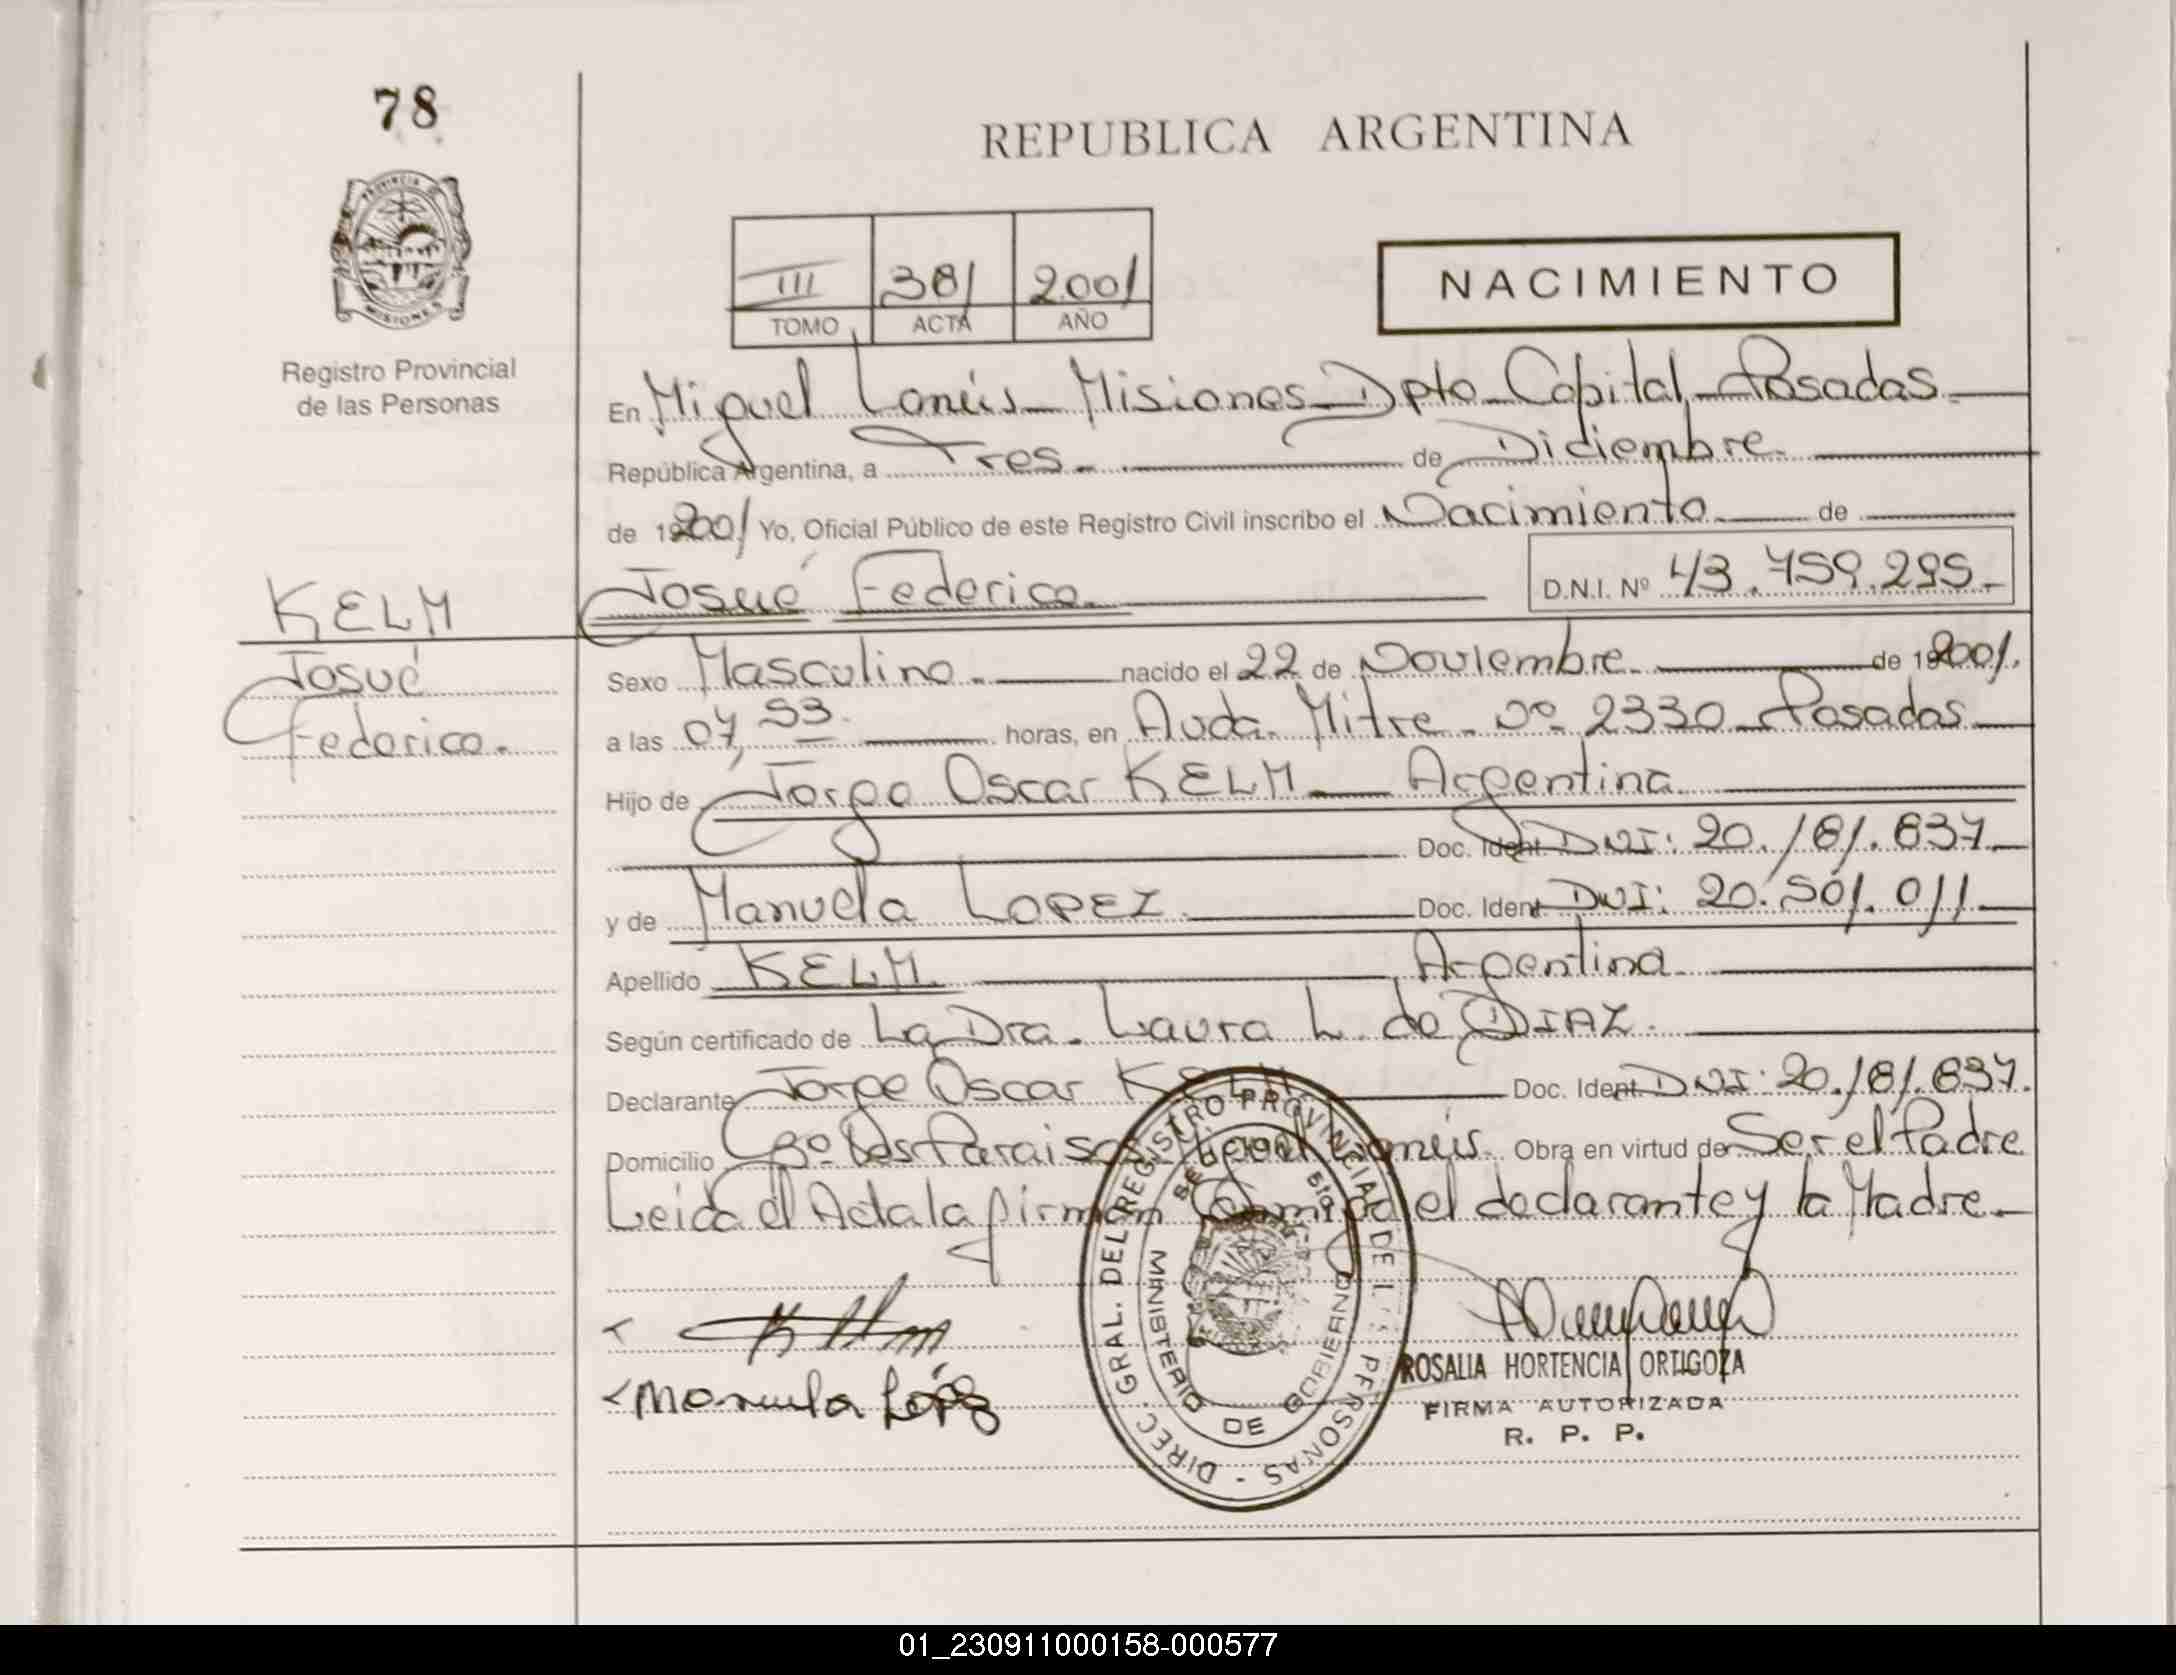 78
REPUBLICA ARGENTINA
PROVINCIA
MISIONES
III 381 2001
TOMO ACTA AÑO
NACIMIENTO
Registro Provincial
de las Personas
En Miguel Lanús_Misiones_Dpto_Capital_Posadas._
República Argentina, a Tres. de Diciembre.
de 2001 Yo, Oficial Público de este Registro Civil inscribo el Nacimiento de
Josué Federico. D.N.I. Nº 43.759.295._
KELM
Josué
Federico.
Sexo Masculino. nacido el 22 de Noviembre. de 2001.
a las 07,53. horas, en Avda. Mitre. Nº. 2330_Posadas._
Hijo de Jorge Oscar KELM_ Argentina.
Doc. Ident. DNI: 20.181.837._
y de Manuela LOPEZ. Doc. Ident. DNI: 20.501.011._
Apellido KELM. Argentina.
Según certificado de La Dra. Laura L. de DIAZ.
Declarante Jorge Oscar KELM Doc. Ident. DNI: 20.181.837.
Domicilio Bº Los Paraisos Miguel Lanús. Obra en virtud de Ser el Padre
Leida el Acta la firman Conmigo el declarante y la Madre._
Manuela López
DIREC. GRAL. DEL REGISTRO PROVINCIAL DE L PERSONAS -
MINISTERIO DE GOBIERNO
ROSALIA HORTENCIA ORTIGOZA
FIRMA AUTORIZADA
R. P. P.
01_230911000158-000577